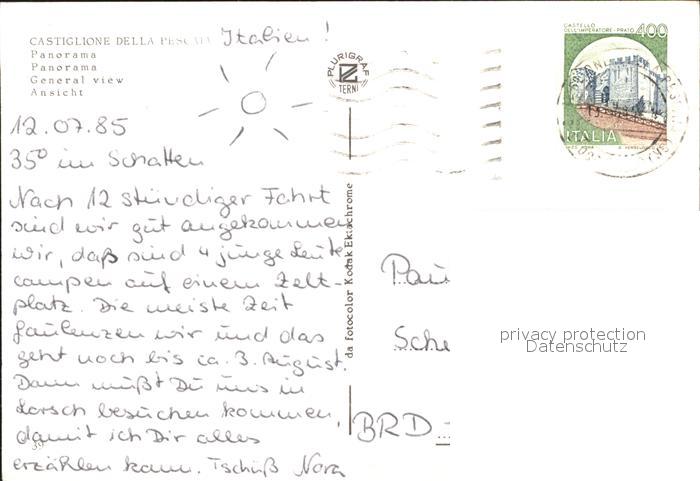 CASTIGLIONE DELLA PESCAIA Italien!
Panorama
Panorama
General view
Ansicht
12.07.85
35° im Schatten
Nach 12 stündiger Fahrt
sind wir gut angekommen
wir, daß sind 4 junge Leute
campen auf einem Zelt-
platz. Die meiste Zeit
faulenzen wir und das
geht noch bis ca. 3. August.
Dann mußt Du uns in
Lorsch besuchen kommen,
damit ich Dir alles
erzählen kann. Tschüß Nora
39
PLURIGRAF
TERNI
da fotocolor Kodak Ektachrome
CASTELLO
DELL'IMPERATORE - PRATO 400
ITALIA
Pau
Sche
BRD
privacy protection
Datenschutz